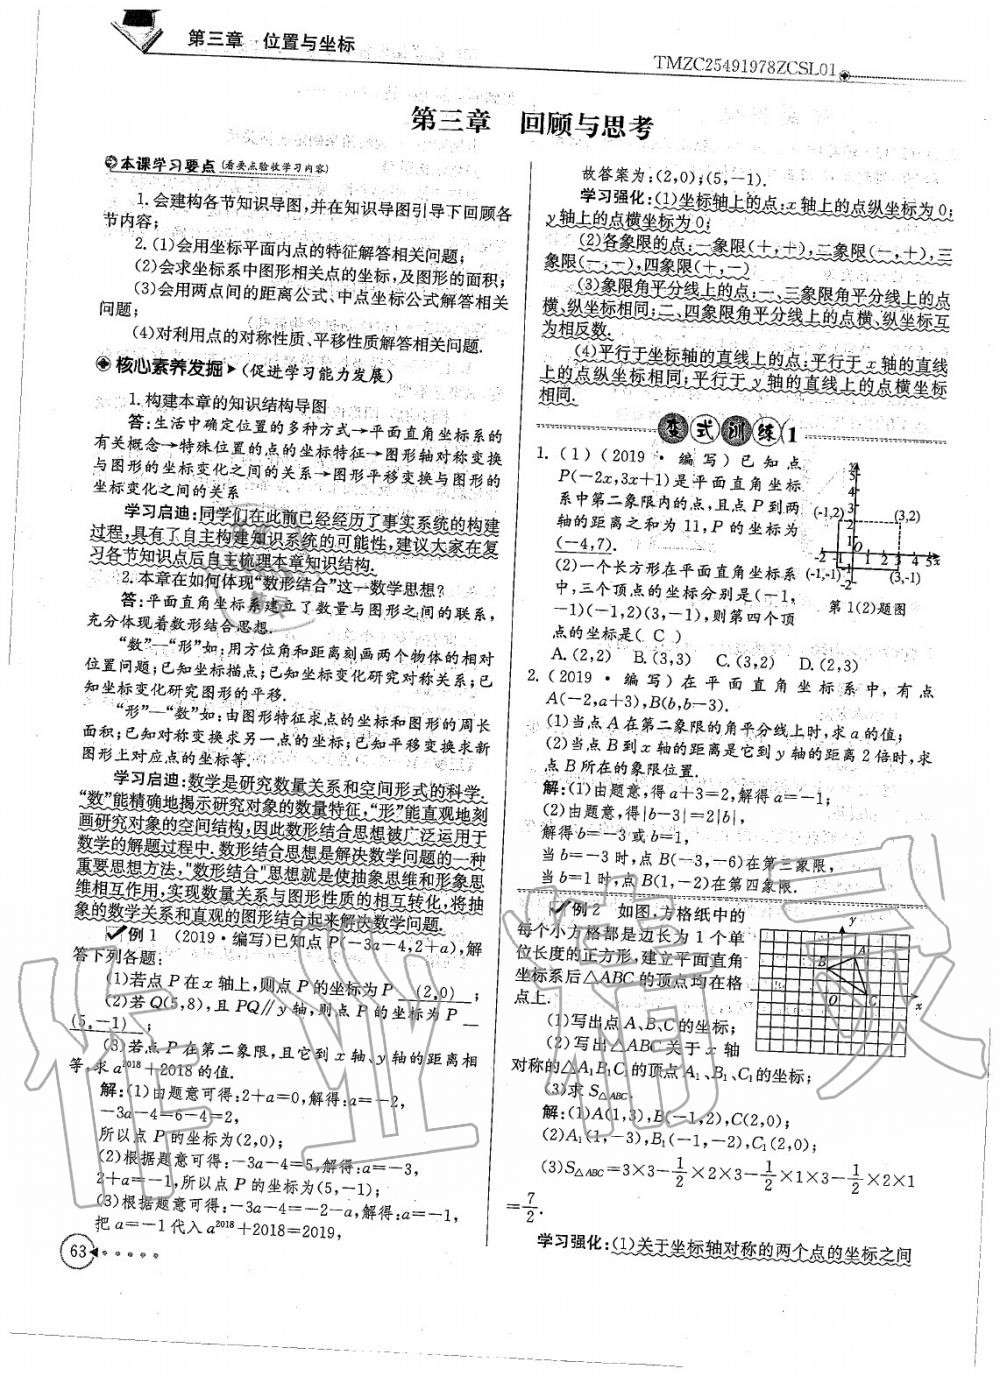 第三章 位置与坐标
TMZC25491978ZCSL01
第三章 回顾与思考
本课学习要点(看要点验收学习内容)
1.会建构各节知识导图,并在知识导图引导下回顾各
节内容;
2.(1)会用坐标平面内点的特征解答相关问题;
(2)会求坐标系中图形相关点的坐标,及图形的面积;
(3)会用两点间的距离公式、中点坐标公式解答相关
问题;
(4)对利用点的对称性质、平移性质解答相关问题.
核心素养发掘(促进学习能力发展)
1.构建本章的知识结构导图
答:生活中确定位置的多种方式→平面直角坐标系的
有关概念→特殊位置的点的坐标特征→图形轴对称变换
与图形的坐标变化之间的关系→图形平移变换与图形的
坐标变化之间的关系
学习启迪:同学们在此前已经经历了事实系统的构建
过程,具有了自主构建知识系统的可能性,建议大家在复
习各节知识点后自主梳理本章知识结构.
2.本章在如何体现“数形结合”这一数学思想?
答:平面直角坐标系建立了数量与图形之间的联系,
充分体现着数形结合思想.
“数”—“形”如:用方位角和距离刻画两个物体的相对
位置问题;已知坐标描点;已知坐标变化研究对称关系;已
知坐标变化研究图形的平移.
“形”—“数”如:由图形特征求点的坐标和图形的周长
面积;已知对称变换求另一点的坐标;已知平移变换求新
图形上对应点的坐标等.
学习启迪:数学是研究数量关系和空间形式的科学.
“数”能精确地揭示研究对象的数量特征,“形”能直观地刻
画研究对象的空间结构,因此数形结合思想被广泛运用于
数学的解题过程中.数形结合思想是解决数学问题的一种
重要思想方法,“数形结合”思想就是使抽象思维和形象思
维相互作用,实现数量关系与图形性质的相互转化,将抽
象的数学关系和直观的图形结合起来解决数学问题.
例1 (2019·编写)已知点P(-3a-4,2+a),解
答下列各题:
(1)若点P在x轴上,则点P的坐标为P (2,0) ;
(2)若Q(5,8),且PQ∥y轴,则点P的坐标为P
(5,-1) ;
(3)若点P在第二象限,且它到x轴、y轴的距离相
等,求a²⁰¹⁸+2018的值.
解:(1)由题意可得:2+a=0,解得:a=-2,
-3a-4=6-4=2,
所以点P的坐标为(2,0);
(2)根据题意可得:-3a-4=5,解得:a=-3,
2+a=-1,所以点P的坐标为(5,-1);
(3)根据题意可得:-3a-4=-2-a,解得:a=-1,
把a=-1代入a²⁰¹⁸+2018=2019,
63
故答案为:(2,0);(5,-1).
学习强化:(1)坐标轴上的点:x轴上的点纵坐标为0;
y轴上的点横坐标为0;
(2)各象限的点:一象限(+,+),二象限(-,+),三
象限(-,-),四象限(+,-)
(3)象限角平分线上的点:一、三象限角平分线上的点
横、纵坐标相同;二、四象限角平分线上的点横、纵坐标互
为相反数.
(4)平行于坐标轴的直线上的点:平行于x轴的直线
上的点纵坐标相同;平行于y轴的直线上的点横坐标
相同.
变式训练1
1.(1)(2019·编写)已知点
P(-2x,3x+1)是平面直角坐标
系中第二象限内的点,且点P到两
轴的距离之和为11,P的坐标为
(-4,7).
(2)一个长方形在平面直角坐标系
中,三个顶点的坐标分别是(-1,
-1)(-1,2)(3,-1),则第四个顶
点的坐标是( C )
A.(2,2) B.(3,3) C.(3,2) D.(2,3)
(-1,2) (3,2)
-2 -1 O 1 2 3 4 5 x
(-1,-1) (3,-1)
第1(2)题图
2.(2019·编写)在平面直角坐标系中,有点
A(-2,a+3),B(b,b-3).
(1)当点A在第二象限的角平分线上时,求a的值;
(2)当点B到x轴的距离是它到y轴的距离2倍时,求
点B所在的象限位置.
解:(1)由题意,得a+3=2,解得a=-1;
(2)由题意,得|b-3|=2|b|,
解得b=-3或b=1,
当b=-3时,点B(-3,-6)在第三象限,
当b=1时,点B(1,-2)在第四象限.
例2 如图,方格纸中的
每个小方格都是边长为1个单
位长度的正方形,建立平面直角
坐标系后△ABC的顶点均在格
点上.
y
A
B
O
C
x
(1)写出点A、B、C的坐标;
(2)写出△ABC关于x轴
对称的△A₁B₁C₁的顶点A₁、B₁、C₁的坐标;
(3)求S△ABC.
解:(1)A(1,3),B(-1,2),C(2,0);
(2)A₁(1,-3),B₁(-1,-2),C₁(2,0);
(3)S△ABC=3×3-1/2×2×3-1/2×1×3-1/2×2×1
=7/2.
学习强化:(1)关于坐标轴对称的两个点的坐标之间
作业精灵